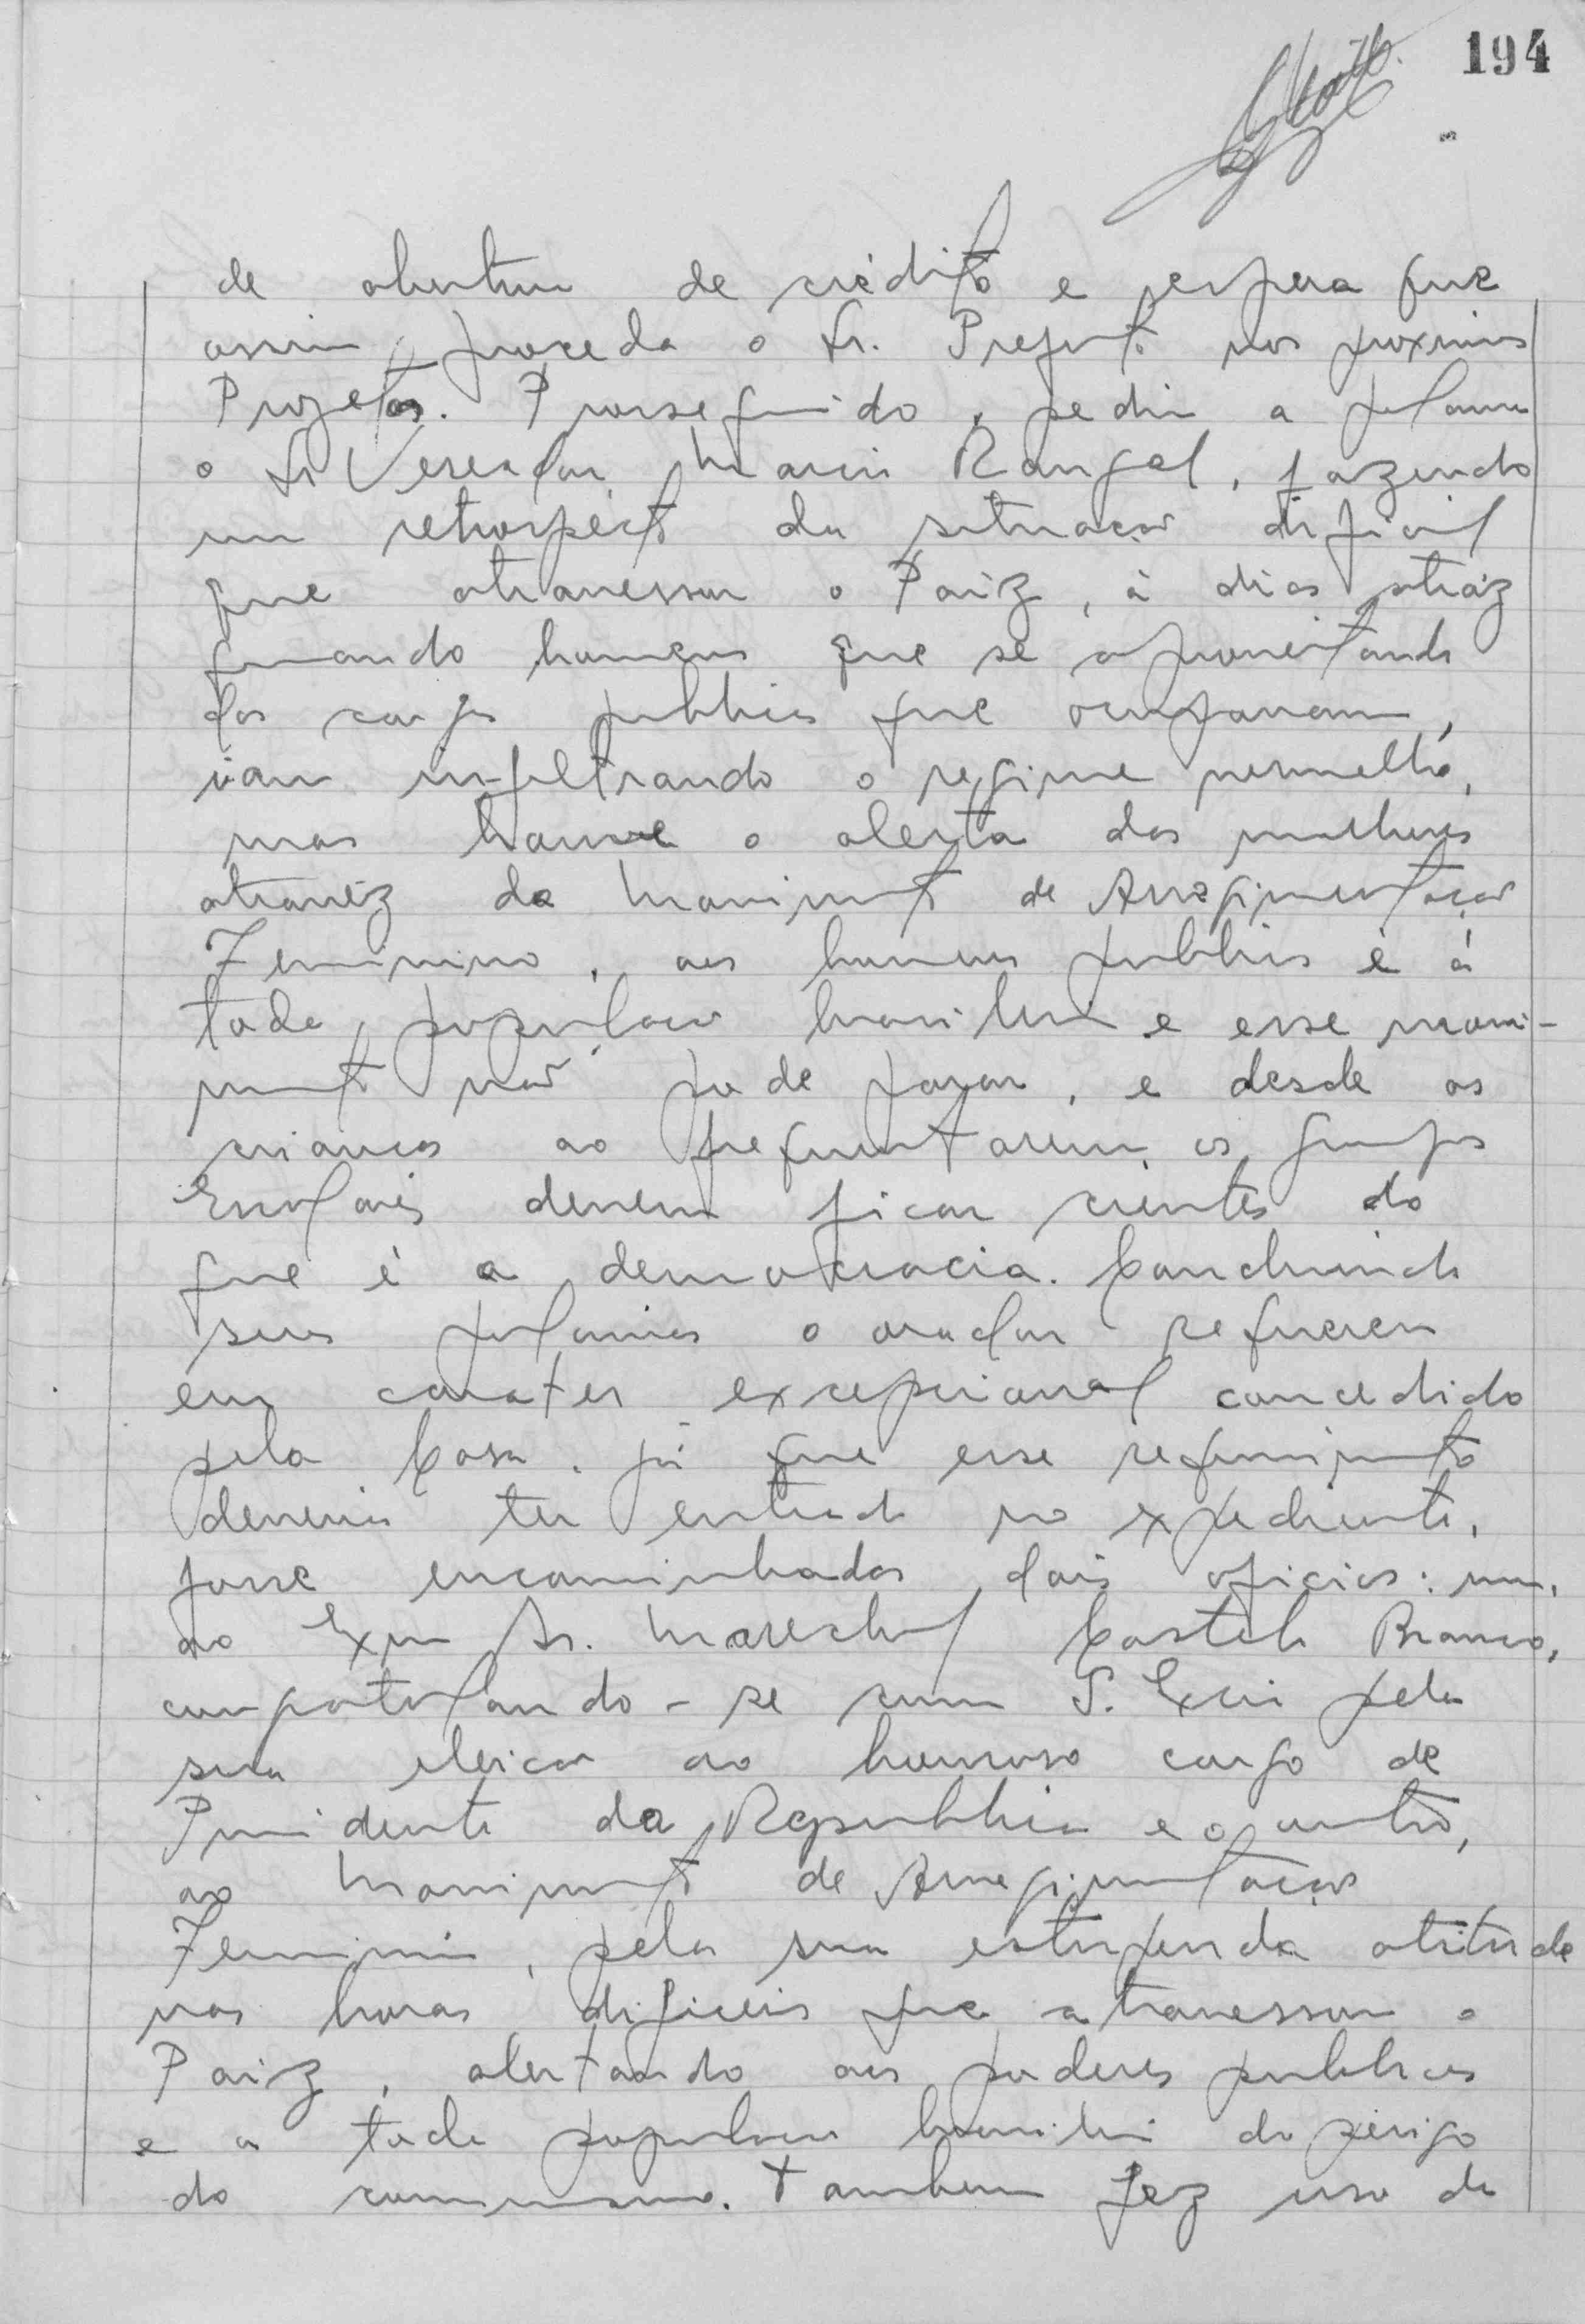 194
de abertura de crédito e espera que
assim proceda o Sr. Prefeito nos proximos
Projetos. Prosseguindo, pediu a palavra
o Sr Vereador Marcio Rangel, fazendo
um retrospécto da situação dificil
que atravessou o Paiz, à dias atráz
quando homens que se aproveitando
dos cargos publicos que ocupavam,
iam infiltrando o regime vermelho,
mas houve o alerta das mulheres
atravéz do Movimento de Arregimentação
Feminino, aos homens publicos e á
toda população brasileira e esse movi-
mento não pode parar, e desde as
crianças ao frequentarem os grupos
Escolares devem ficar cientes do
que é a democracia. Concluindo
suas palavras o orador requereu
em carater excepcional concedido
pela Casa, já que esse requerimento
deveria ter entrado no expediente,
fosse encaminhados dois oficios: um,
ao Exmo Sr. Marechal Castelo Branco,
congratulando-se com S. Excia pela
sua eleição ao honroso cargo de
Presidente da Republica e o outro,
ao Movimento de Arregimentação
Feminina, pela sua estupenda atitude
nas horas dificeis que atravessou o
Paiz, alertando aos poderes publicos
e a toda população brasileira do perigo
do comunismo. Tambem fez uso da